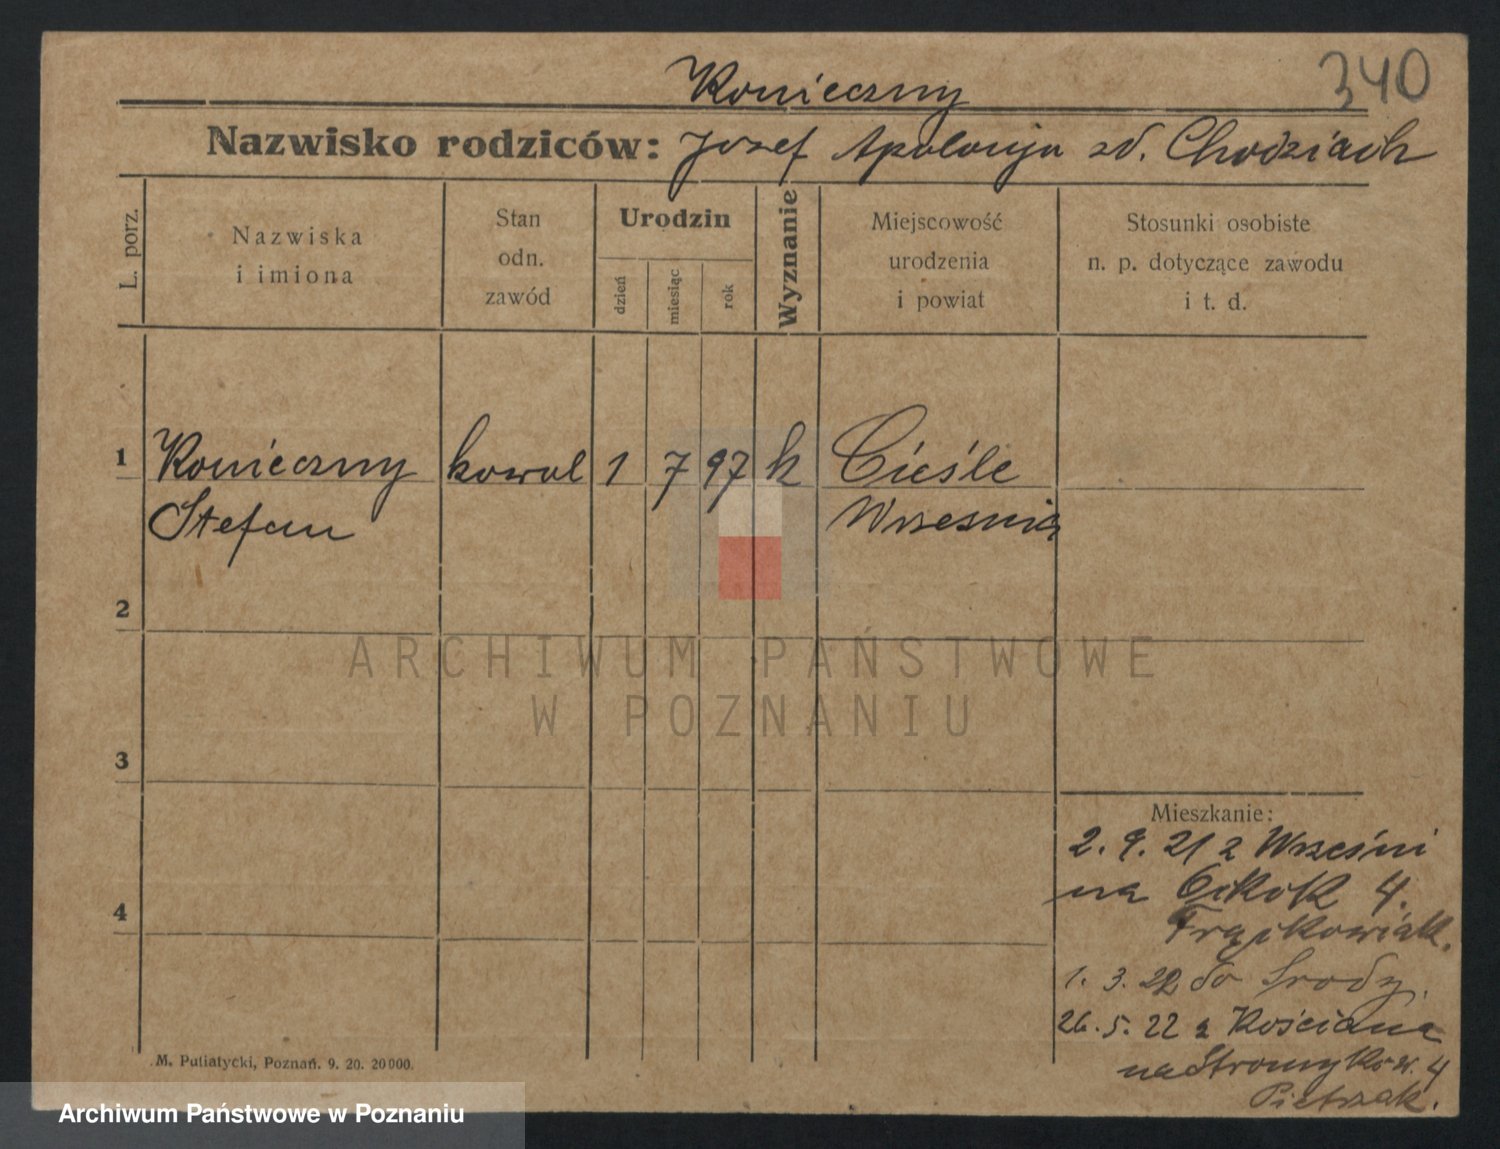 340
Konieczny
Nazwisko rodziców: Józef Apolonja zd. Chodziach
L. porz.
Nazwiska
i imiona
Stan
odn.
zawód
Urodzin
dzień
miesiąc
rok
Wyznanie
Miejscowość
urodzenia
i powiat
Stosunki osobiste
n. p. dotyczące zawodu
i t. d.
1 Konieczny kowal 1 7 97 k Cieśle
Stefan Wrzesnia
2
ARCHIWUM PAŃSTWOWE
W POZNANIU
3
Mieszkanie:
2. 9. 21 z Wrześni
na 4.
4
1. 3. 22 do Srody.
26. 5. 22 z Kościana
na 4
Pietrzak.
M. Putiatycki, Poznań. 9. 20. 20000.
Archiwum Państwowe w Poznaniu